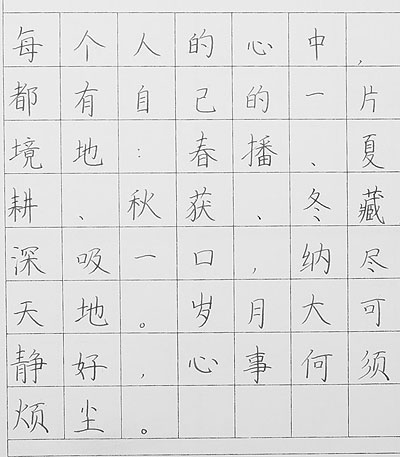 每个人的心中，
都有自己的一片
境地：春播、夏
耕、秋获、冬藏
深吸一口，纳尽
天地。岁月大可
静好，心事何须
烦尘。